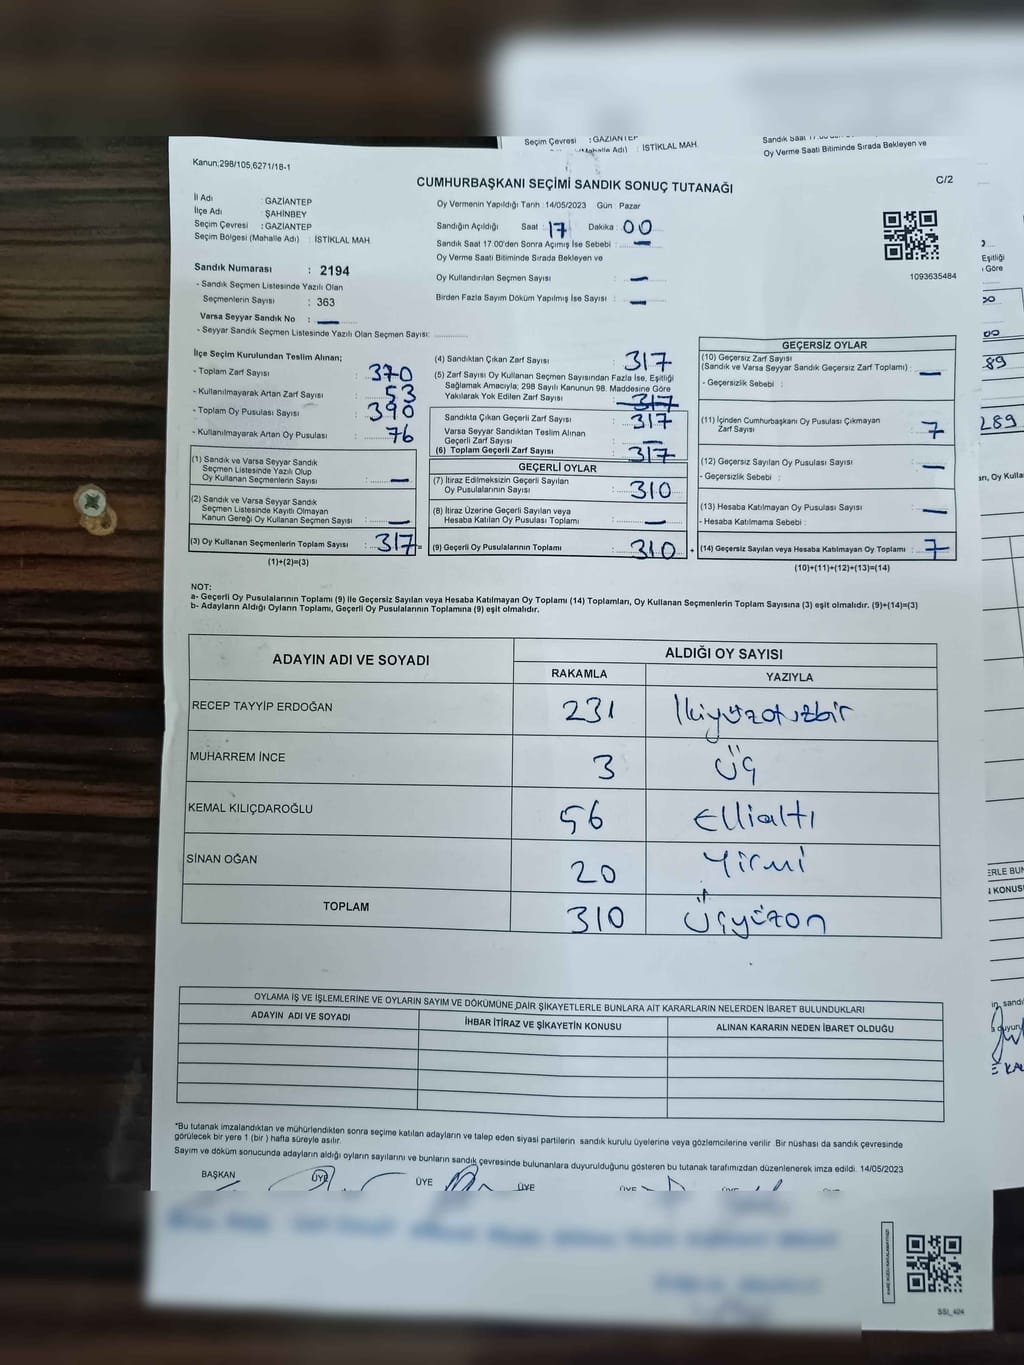 Seçim Çevresi : GAZİANTEP
(Mahalle Adı) : İSTİKLAL MAH.
Oy Verme Saati Bitiminde Sırada Bekleyen ve
Kanun;298/105,6271/18-1
C/2
CUMHURBAŞKANI SEÇİMİ SANDIK SONUÇ TUTANAĞI
İl Adı : GAZİANTEP
İlçe Adı : ŞAHİNBEY
Seçim Çevresi : GAZİANTEP
Seçim Bölgesi (Mahalle Adı) : İSTİKLAL MAH.
Sandık Numarası : 2194
- Sandık Seçmen Listesinde Yazılı Olan
Seçmenlerin Sayısı : 363
Varsa Seyyar Sandık No : —
- Seyyar Sandık Seçmen Listesinde Yazılı Olan Seçmen Sayısı: ............
Oy Vermenin Yapıldığı Tarih :14/05/2023 Gün : Pazar
Sandığın Açıldığı Saat : 17 Dakika : 00
Sandık Saat 17.00'den Sonra Açımış İse Sebebi : —
Oy Verme Saati Bitiminde Sırada Bekleyen ve
Oy Kullandırılan Seçmen Sayısı : —
Birden Fazla Sayım Döküm Yapılmış İse Sayısı : —
1093635484
İlçe Seçim Kurulundan Teslim Alınan;
- Toplam Zarf Sayısı : 370
- Kullanılmayarak Artan Zarf Sayısı : 53
- Toplam Oy Pusulası Sayısı : 390
- Kullanılmayarak Artan Oy Pusulası : 76
(1) Sandık ve Varsa Seyyar Sandık
Seçmen Listesinde Yazılı Olup
Oy Kullanan Seçmenlerin Sayısı : —
(2) Sandık ve Varsa Seyyar Sandık
Seçmen Listesinde Kayıtlı Olmayan
Kanun Gereği Oy Kullanan Seçmen Sayısı : —
(3) Oy Kullanan Seçmenlerin Toplam Sayısı : 317 =
(1)+(2)=(3)
(4) Sandıktan Çıkan Zarf Sayısı : 317
(5) Zarf Sayısı Oy Kullanan Seçmen Sayısından Fazla İse, Eşitliği
Sağlamak Amacıyla; 298 Sayılı Kanunun 98. Maddesine Göre
Yakılarak Yok Edilen Zarf Sayısı : 317
Sandıkta Çıkan Geçerli Zarf Sayısı : 317
Varsa Seyyar Sandıktan Teslim Alınan
Geçerli Zarf Sayısı : —
(6) Toplam Geçerli Zarf Sayısı : 317
GEÇERLİ OYLAR
(7) İtiraz Edilmeksizin Geçerli Sayılan
Oy Pusulalarının Sayısı : 310
(8) İtiraz Üzerine Geçerli Sayılan veya
Hesaba Katılan Oy Pusulası Toplamı : —
(9) Geçerli Oy Pusulalarının Toplamı : 310 +
GEÇERSİZ OYLAR
(10) Geçersiz Zarf Sayısı
(Sandık ve Varsa Seyyar Sandık Geçersiz Zarf Toplamı) : —
- Geçersizlik Sebebi :
(11) İçinden Cumhurbaşkanı Oy Pusulası Çıkmayan
Zarf Sayısı : 7
(12) Geçersiz Sayılan Oy Pusulası Sayısı : —
- Geçersizlik Sebebi :
(13) Hesaba Katılmayan Oy Pusulası Sayısı : —
- Hesaba Katılmama Sebebi :
(14) Geçersiz Sayılan veya Hesaba Katılmayan Oy Toplamı : 7
(10)+(11)+(12)+(13)=(14)
NOT:
a- Geçerli Oy Pusulalarının Toplamı (9) ile Geçersiz Sayılan veya Hesaba Katılmayan Oy Toplamı (14) Toplamları, Oy Kullanan Seçmenlerin Toplam Sayısına (3) eşit olmalıdır. (9)+(14)=(3)
b- Adayların Aldığı Oyların Toplamı, Geçerli Oy Pusulalarının Toplamına (9) eşit olmalıdır.
ADAYIN ADI VE SOYADI ALDIĞI OY SAYISI
RAKAMLA YAZIYLA
RECEP TAYYİP ERDOĞAN 231 İkiyüzotuzbir
MUHARREM İNCE 3 üç
KEMAL KILIÇDAROĞLU 56 Ellialtı
SİNAN OĞAN 20 Yirmi
TOPLAM 310 Üçyüzon
OYLAMA İŞ VE İŞLEMLERİNE VE OYLARIN SAYIM VE DÖKÜMÜNE DAİR ŞİKAYETLERLE BUNLARA AİT KARARLARIN NELERDEN İBARET BULUNDUKLARI
ADAYIN ADI VE SOYADI İHBAR İTİRAZ VE ŞİKAYETİN KONUSU ALINAN KARARIN NEDEN İBARET OLDUĞU
*Bu tutanak imzalandıktan ve mühürlendikten sonra seçime katılan adayların ve talep eden siyasi partilerin sandık kurulu üyelerine veya gözlemcilerine verilir. Bir nüshası da sandık çevresinde
görülecek bir yere 1 (bir ) hafta süreyle asılır.
Sayım ve döküm sonucunda adayların aldığı oyların sayılarını ve bunların sandık çevresinde bulunanlara duyurulduğunu gösteren bu tutanak tarafımızdan düzenlenerek imza edildi. 14/05/2023
BAŞKAN ÜYE ÜYE ÜYE ÜYE ÜYE ÜYE
Eşitliği
Göre
89
289